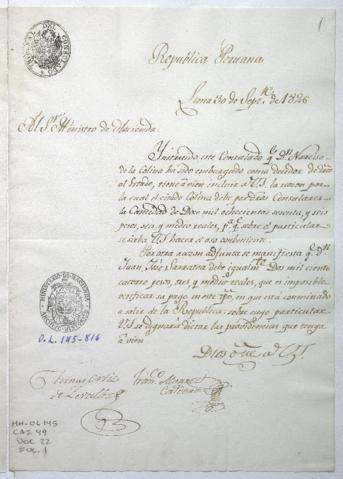 1
Republica Peruana
Lima 30 de Septe. de 1826
Al Sr. Ministro de Hacienda.
Intimado este Consulado qe. Dn. Narciso
de la Colina ha sido embargado como deudor
el Estado, tiene a vien incluir a US. la razon por
la cual el citado Colina debe
la Cantidad de Dos mil ochocientos noventa, y seis
pesos, seis, y medio reales, pa. qe. sobre el particular
US hacer el uso combeniente.
Por otra razon adjunta se manifiesta qe. Dn.
Juan José Sarratea debe igualmte. Dos mil ciento
catorce pesos, tres, y medio reales, que es imposible
verificar su pago en este tpo. en que está comminado
a salir de la Republica; sobre cuyo particular
US se dignará dictar las providencias que tenga
a vien
Dios gue. a US.
O.L. 145-816
HH-OL 145
CAJ. 49
DOC. 22
FOL. 1